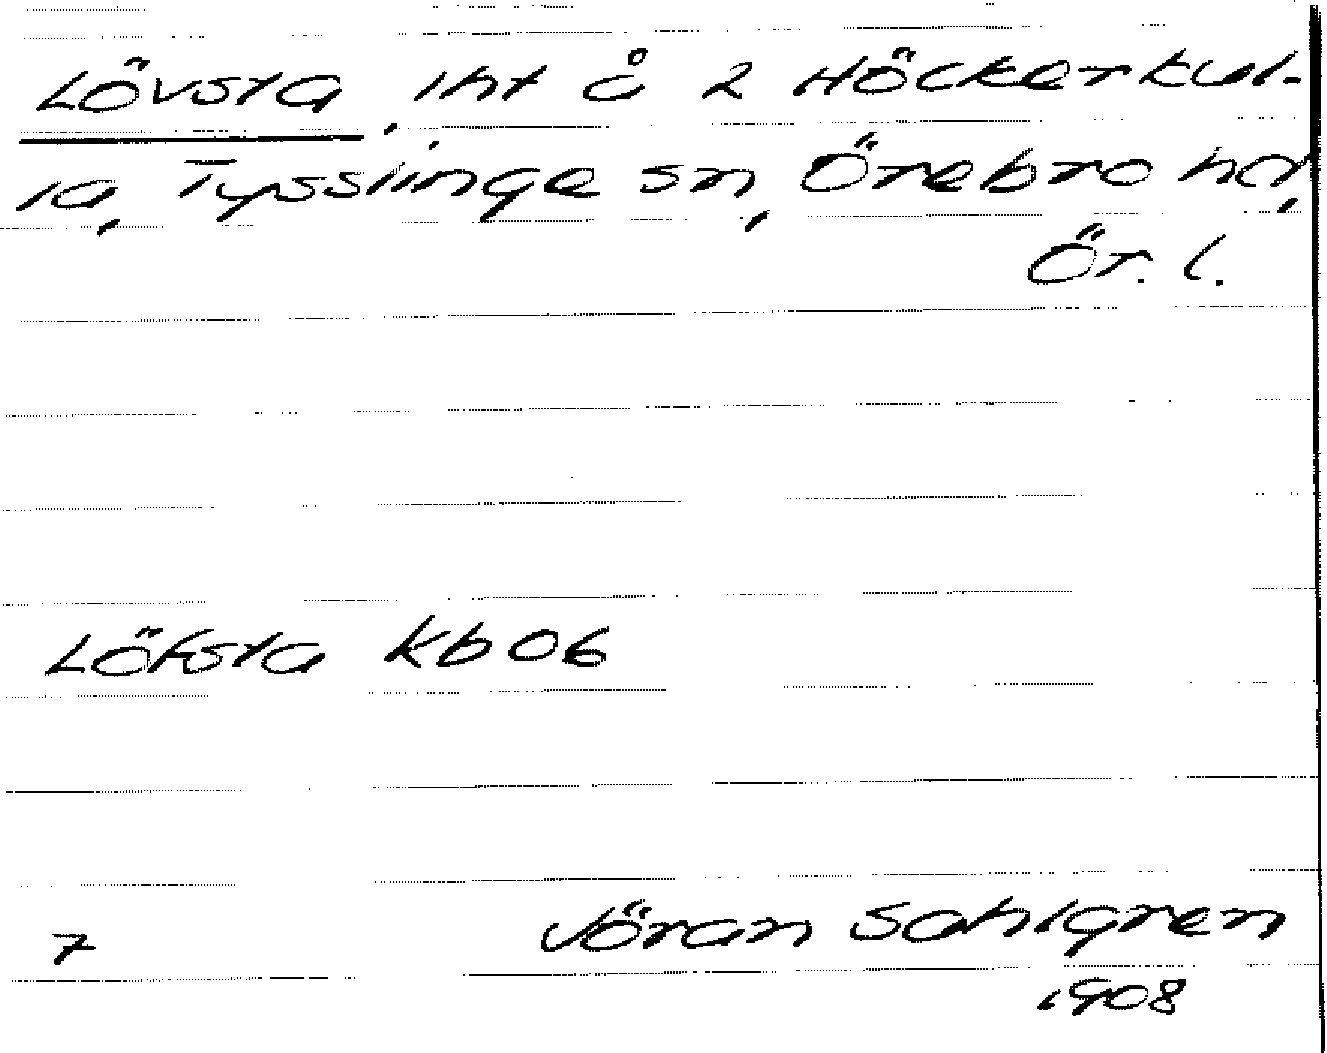 Lövsta, lht å 2 Höckerkul-
la, Tysslinge sn, Örebro hd,
Ör. l.
Löfsta kb 06
7 Jöran Sahlgren
1908